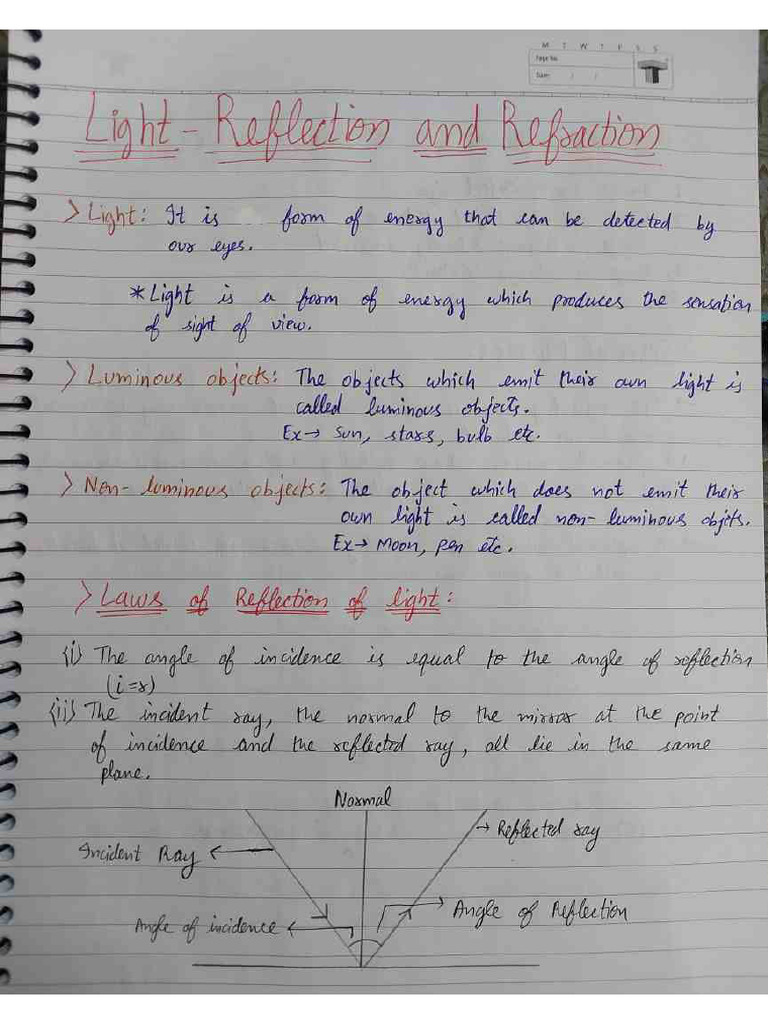 M T W T F S S
Page No.
Date: / /
Light - Reflection and Refraction
> Light: It is form of energy that can be detected by
our eyes.
* Light is a form of energy which produces the sensation
of sight of view.
> Luminous objects: The objects which emit their own light is
called luminous objects.
Ex→ Sun, stars, bulb etc.
> Non-luminous objects: The object which does not emit their
own light is called non-luminous objets.
Ex→ Moon, pen etc.
> Laws of Reflection of light:
(i) The angle of incidence is equal to the angle of reflection
(i=r)
(ii) The incident ray, the normal to the mirror at the point
of incidence and the reflected ray, all lie in the same
plane.
Normal
→ Reflected ray
Incident Ray ←
Angle of Reflection
Angle of incidence ←